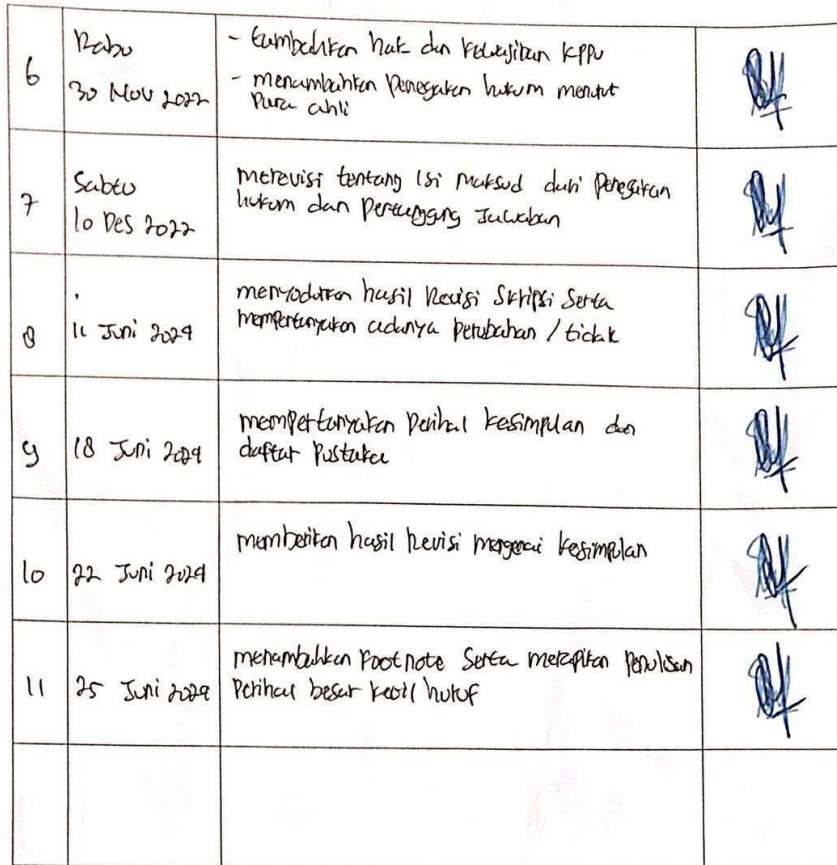 6
Rabu
30 Nov 2022
- tambahkan hak dan kewajiban KPPU
- menambahkan Penegakan hukum menurut
Para ahli
7
Sabtu
10 Des 2022
merevisi tentang Isi Maksud dari Penegakan
hukum dan Pertanggung Jawaban
8
11 Juni 2024
menyodorkan hasil Revisi Skripsi Serta
mempertanyakan adanya perubahan / tidak
9
18 Juni 2024
mempertanyakan Perihal kesimpulan dan
daftar Pustaka
10
22 Juni 2024
memberikan hasil Revisi mengenai kesimpulan
11
25 Juni 2024
menambahkan Footnote Serta merapikan Penulisan
Perihal besar kecil huruf